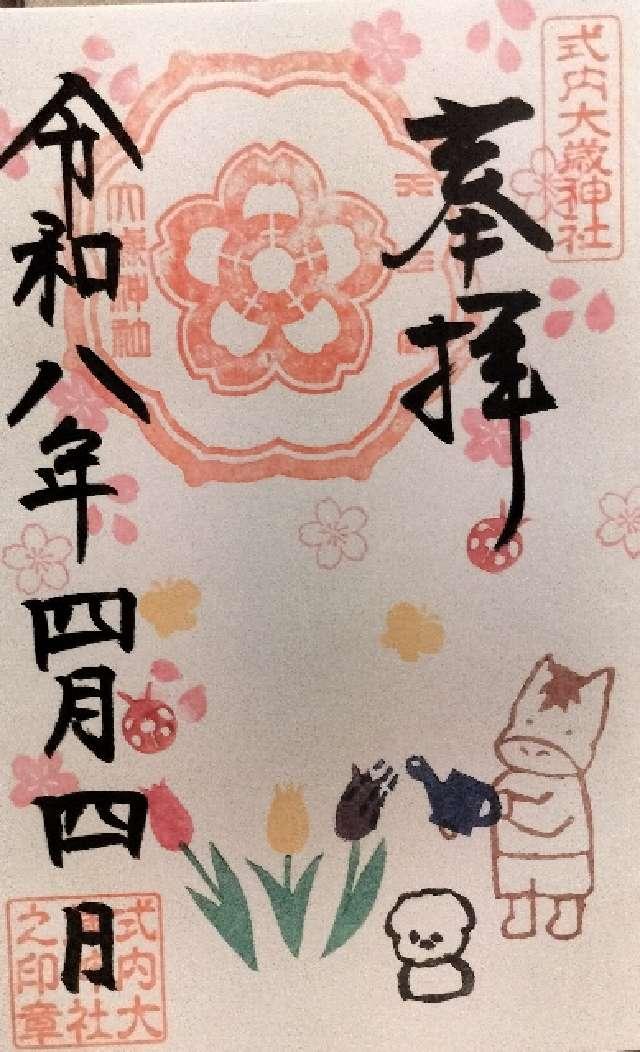 式内大歳神社
奉拝
大歳神社
令和八年四月四日
式内大
社
之印章